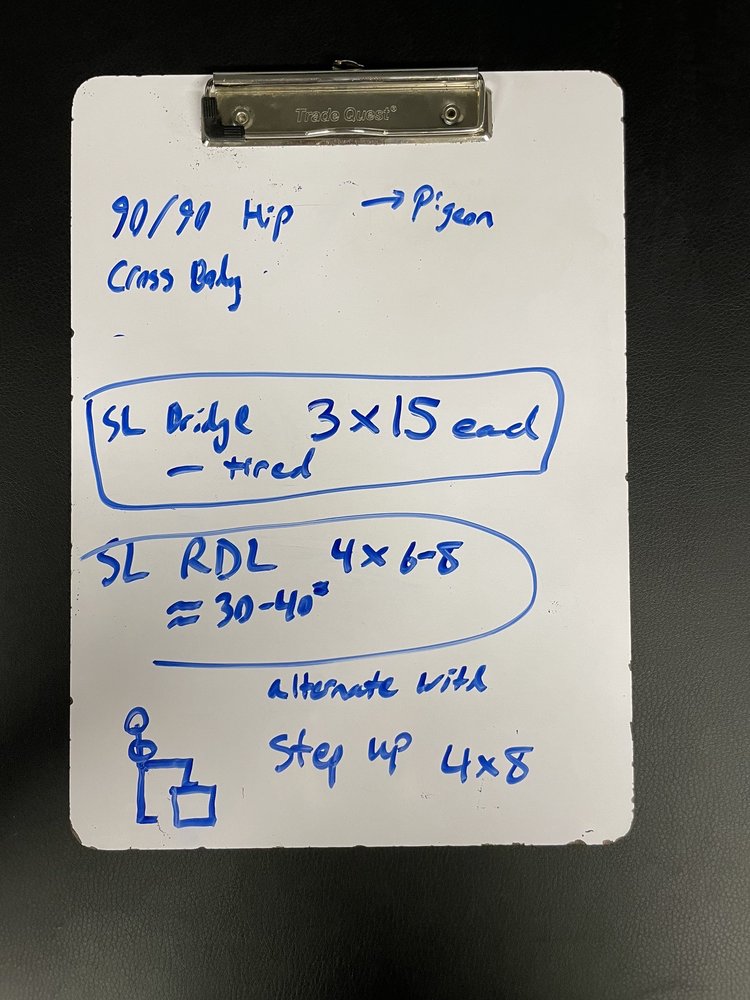 Trade Quest®
90/90 Hip → Pigeon
Cross Body
-
SL Bridge 3x15 each
- tired
SL RDL 4x6-8
≈ 30-40#
alternate with
Step up 4x8